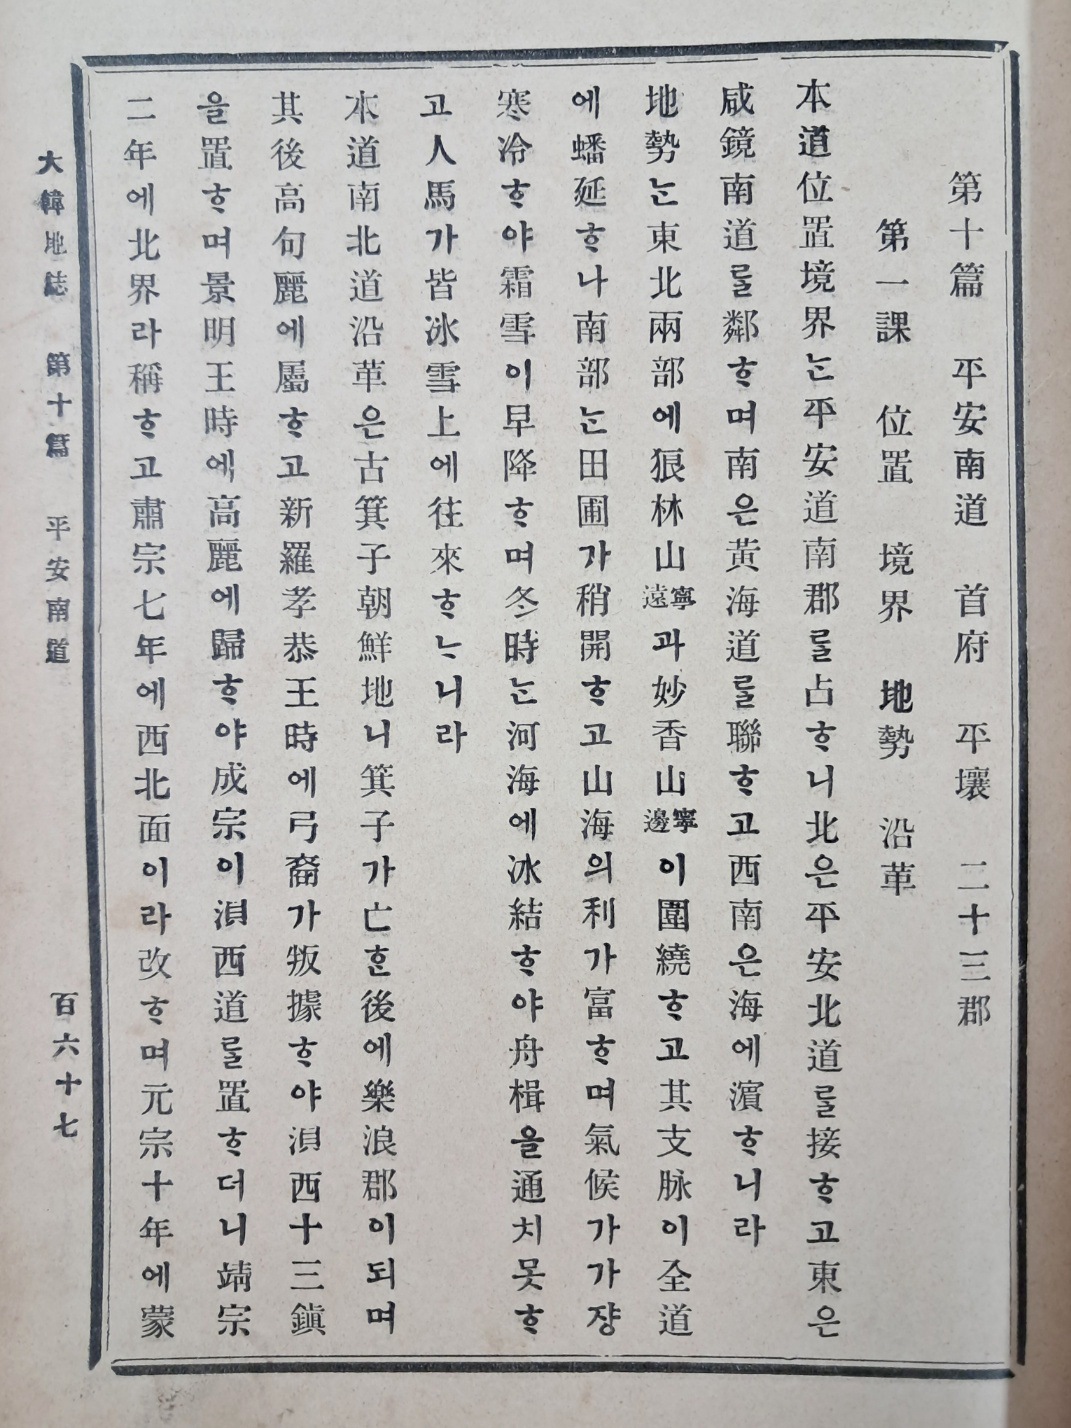 第十篇 平安南道 首府 平壤 二十三郡
第一課 位置 境界 地勢 沿革
本道位置境界는平安道南郡를占ᄒᆞ니北은平安北道를接ᄒᆞ고東은
咸鏡南道를鄰ᄒᆞ며南은黃海道를聯ᄒᆞ고西南은海에濱ᄒᆞ니라
地勢는東北兩部에狼林山寧遠과妙香山寧邊이圍繞ᄒᆞ고其支脉이全道
에蟠延ᄒᆞ나南部는田圃가稍開ᄒᆞ고山海의利가富ᄒᆞ며氣候가가쟝
寒冷ᄒᆞ야霜雪이早降ᄒᆞ며冬時는河海에冰結ᄒᆞ야舟楫을通치못ᄒᆞ
고人馬가皆冰雪上에往來ᄒᆞᄂᆞ니라
本道南北道沿革은古箕子朝鮮地니箕子가亡ᄒᆞᆫ後에樂浪郡이되며
其後高句麗에屬ᄒᆞ고新羅孝恭王時에弓裔가叛據ᄒᆞ야浿西十三鎭
을置ᄒᆞ며景明王時에高麗에歸ᄒᆞ야成宗이浿西道를置ᄒᆞ더니靖宗
二年에北界라稱ᄒᆞ고肅宗七年에西北面이라改ᄒᆞ며元宗十年에蒙
大韓地誌 第十篇 平安南道 百六十七